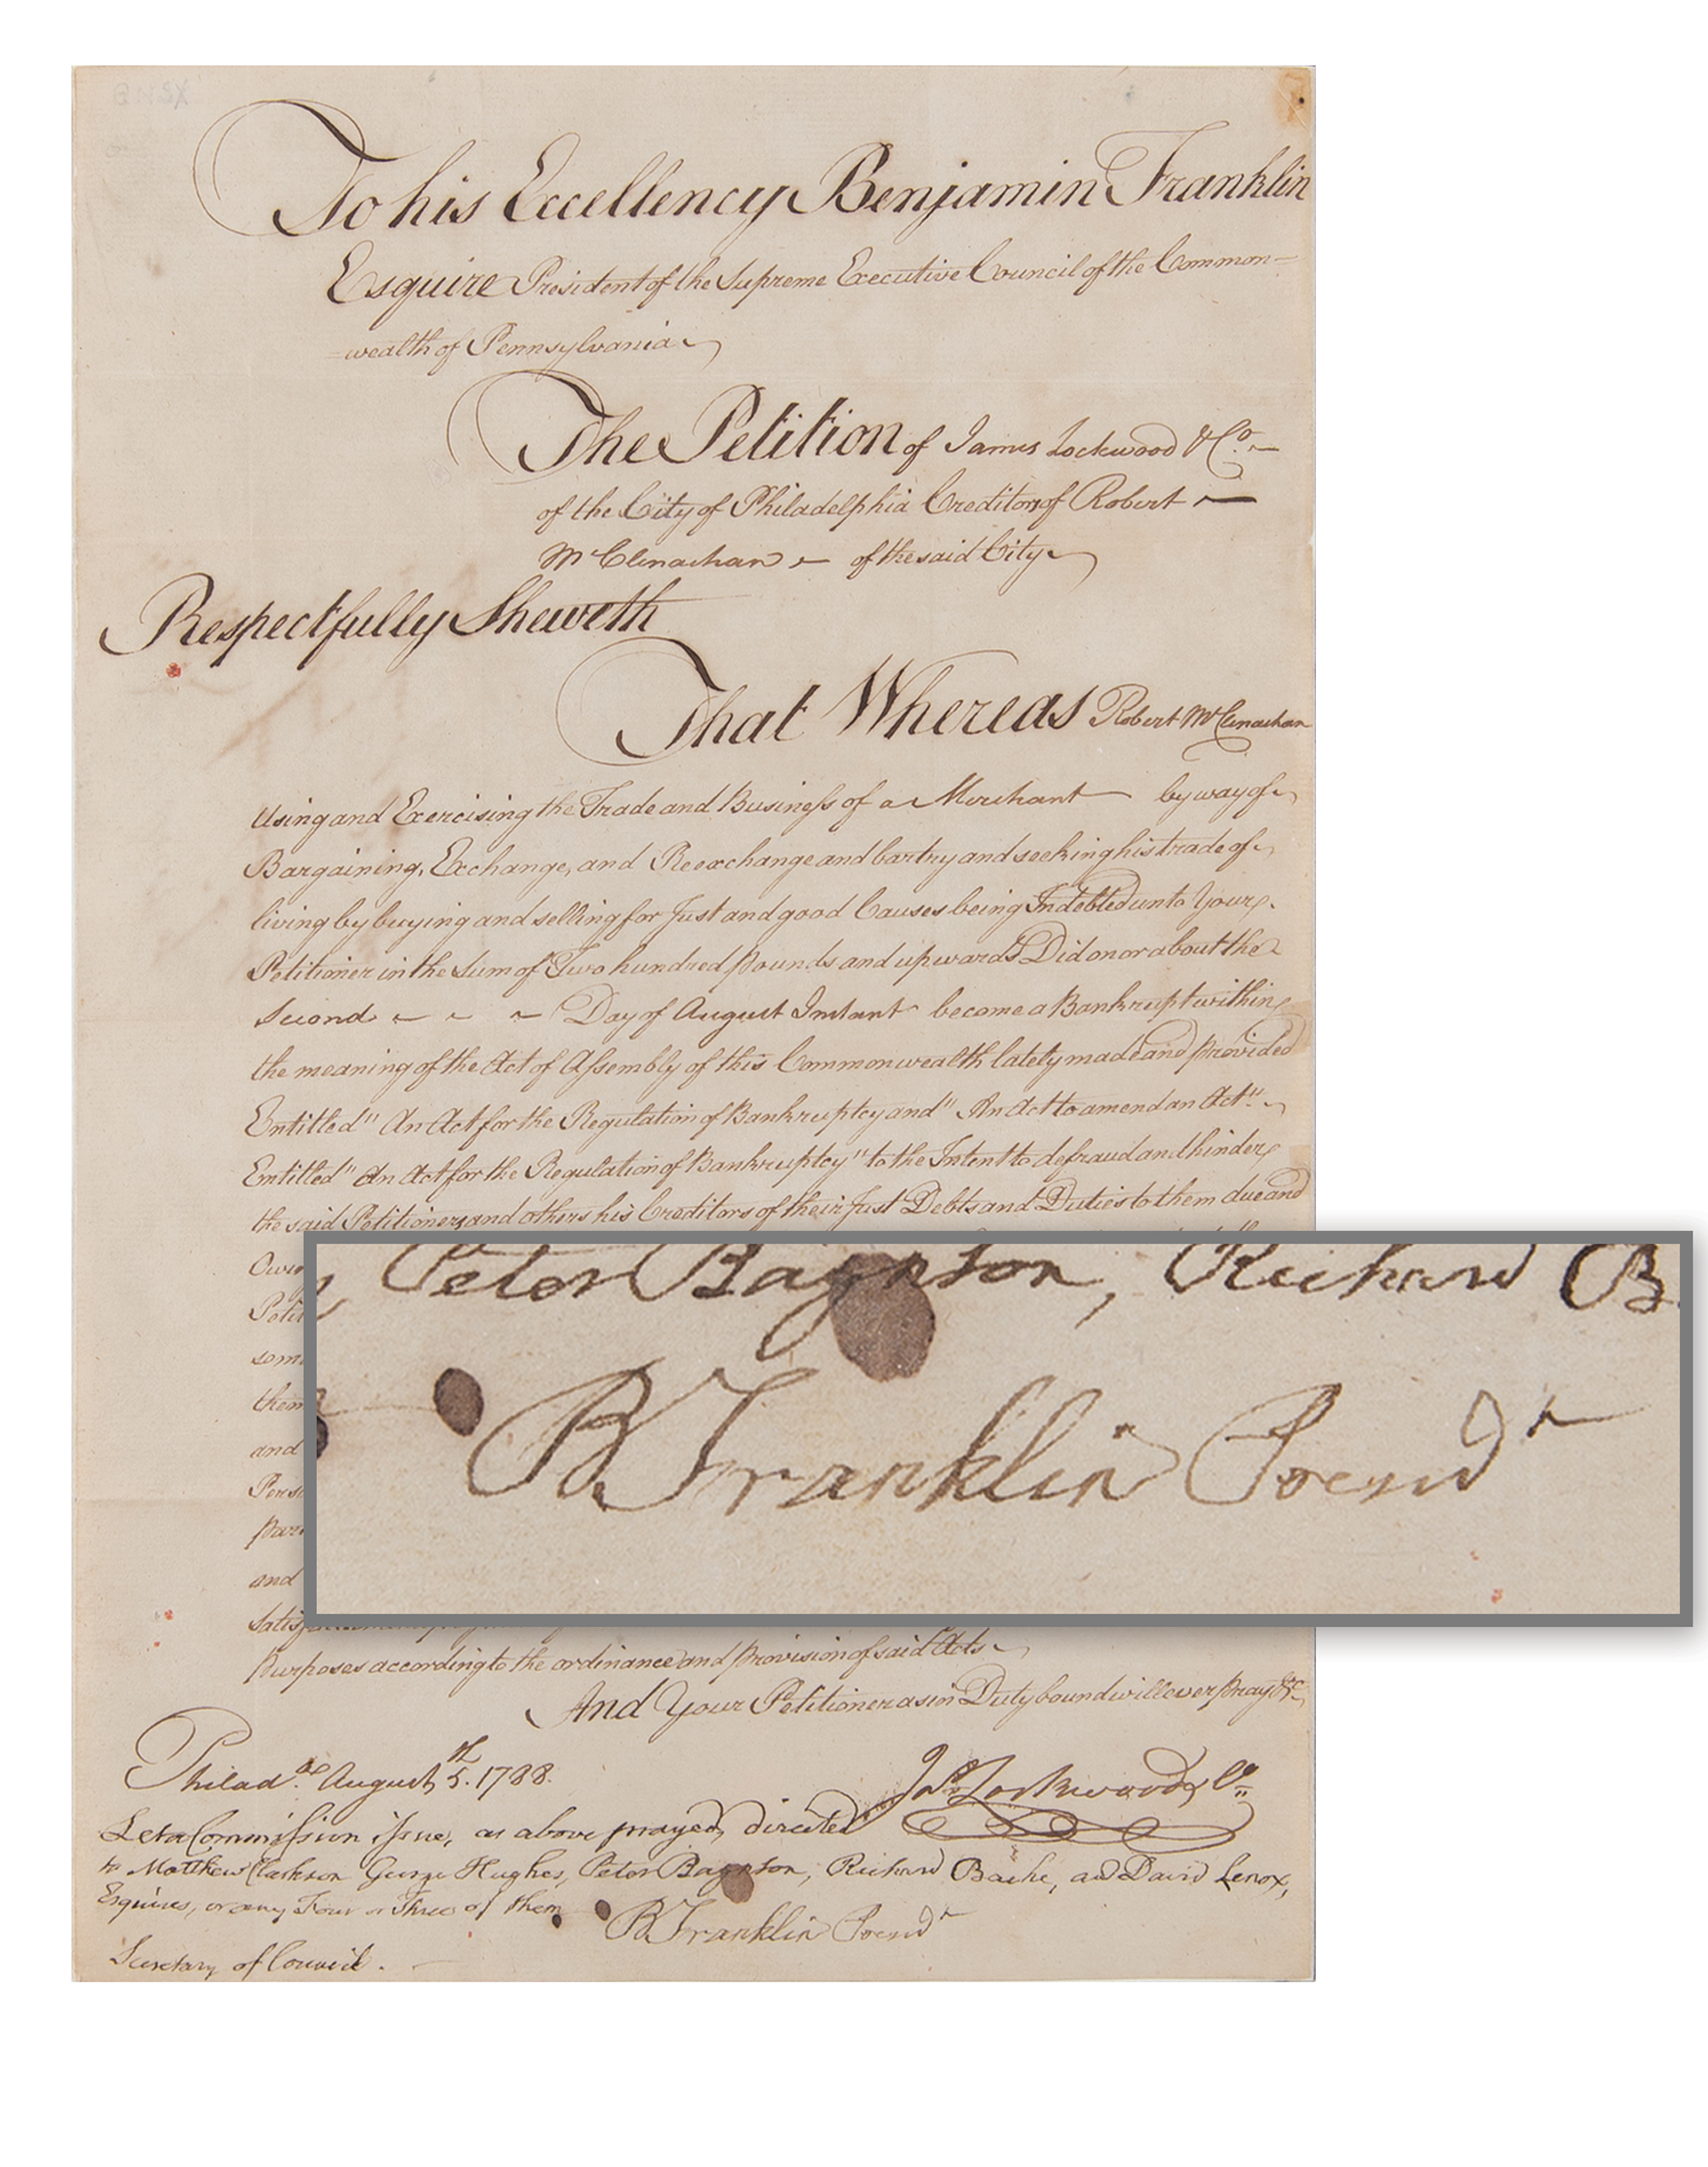 To his Excellency Benjamin Franklin
Esquire President of the Supreme Executive Council of the Common-
=wealth of Pennsylvania
The Petition of James Lockwood & Co.
of the City of Philadelphia Creditors of Robert
McClenachan of the said City
Respectfully Sheweth
That Whereas Robert McClenachan
Using and Exercising the Trade and Business of a Merchant by way of
Bargaining, Exchange, and Reexchange and bartry and seeking his trade of
living by buying and selling for Just and good Causes being Indebted unto Your
Petitioner in the Sum of Two hundred pounds and upwards Did on or about the
Second Day of August Instant become a Bankrupt within
the meaning of the Act of Assembly of this Commonwealth lately made and provided
Entitled "An Act for the Regulation of Bankruptcy and "An Act to amend an Act"
Entitled "An Act for the Regulation of Bankruptcy" to the Intent to defraud and hinder
the said Petitioners and others his Creditors of their Just Debts and Duties to them due and
Peter Baynton, Richard B
B Franklin Presidt
them
and
and
Purposes according to the ordinance and provision of said Acts
And Your Petitioner as in Duty bound will ever pray &c
Philada. August 5th. 1788.
Jas. Lockwood & Co.
Let a Commission issue, as above prayed, directed
to Matthew Clarkson George Hughes, Peter Baynton, Richard Bache, and David Lenox,
Esquires, or any Four or Three of them
B Franklin Presidt
Secretary of Council.